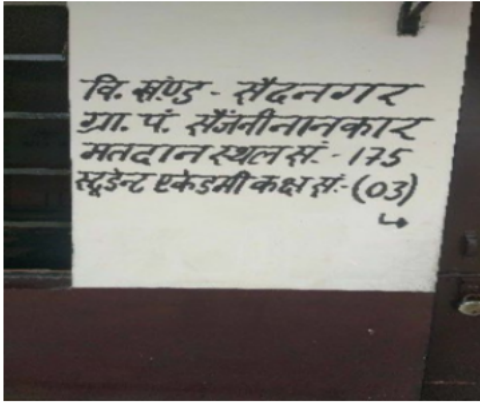 वि. खण्ड - सैदनगर
ग्रा. पं. सैंजनीनानकार
मतदान स्थल सं.- 175
स्टूडेन्ट एकेडमी कक्ष सं.- (03)